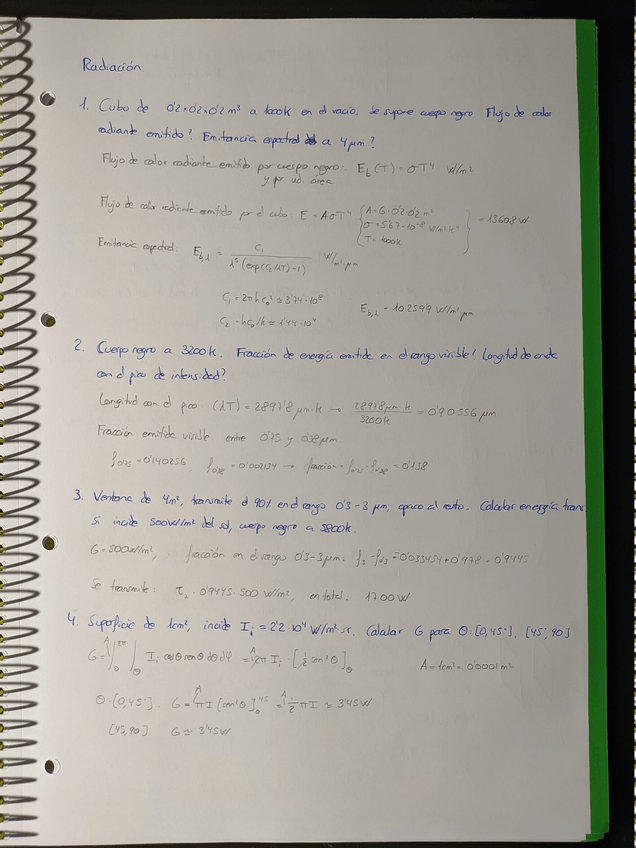 Radiación.
1. Cubo de 0'2×0'2×0'2 m³ a 1000K en el vacío. Se supone cuerpo negro. Flujo de calor
radiante emitido? Emitancia espectral a 4 μm?
Flujo de calor radiante emitido por cuerpo negro: E_b(T) = σT⁴ W/m²
y por ud. área
Flujo de calor radiante emitido por el cubo E = AσT⁴ { A = 6·0'2·0'2 m²
σ = 5'67·10⁻⁸ W/m²K⁴
T = 1000K } = 13608 W
Emitancia espectral: E_b,λ = C₁ / λ⁵(exp(C₂/λT)-1) W/m²·μm
C₁ = 2πhc₀² ≃ 3'74·10⁸
C₂ = hc₀/k ≃ 1'44·10⁴
E_b,λ = 10259'9 W/m² μm
2. Cuerpo negro a 3200K. Fracción de energía emitida en el rango visible? Longitud de onda
con el pico de intensidad?
Longitud con el pico: (λT) = 2897'8 μm·K → 2897'8 μm·K / 3200K = 0'90556 μm
Fracción emitida visible entre 0'75 y 0'38 μm
f₀'₇₅ = 0'140256, f₀'₃₈ = 0'002134 → fracción = f₀'₇₅ - f₀'₃₈ = 0'138
3. Ventana de 4m², transmite el 90% en el rango 0'3-3 μm, opaco al resto. Calcular energía trans
si incide 500 W/m² del sol, cuerpo negro a 5800K.
G = 500 W/m², fracción en el rango 0'3-3μm: f₃ - f₀'₃ = -0'033454 + 0'978 = 0'9445
Se transmite: τ · 0'9445 · 500 W/m², en total: 1700 W
4. Superficie de 1cm², incide I_i = 2'2·10⁴ W/m² sr. Calcular G para Θ: [0,45°], [45°,90]
G = A ∫₀^2π ∫_Θ I_i cosΘ senΘ dΘ dφ = A 2π I_i · [½ sen²Θ]_Θ
A = 1cm² = 0'0001 m²
Θ: [0,45°]. G = A π I [sen²Θ]₀^45 = A ½ π I ≃ 3'45 W
[45,90] G ≃ 3'45 W